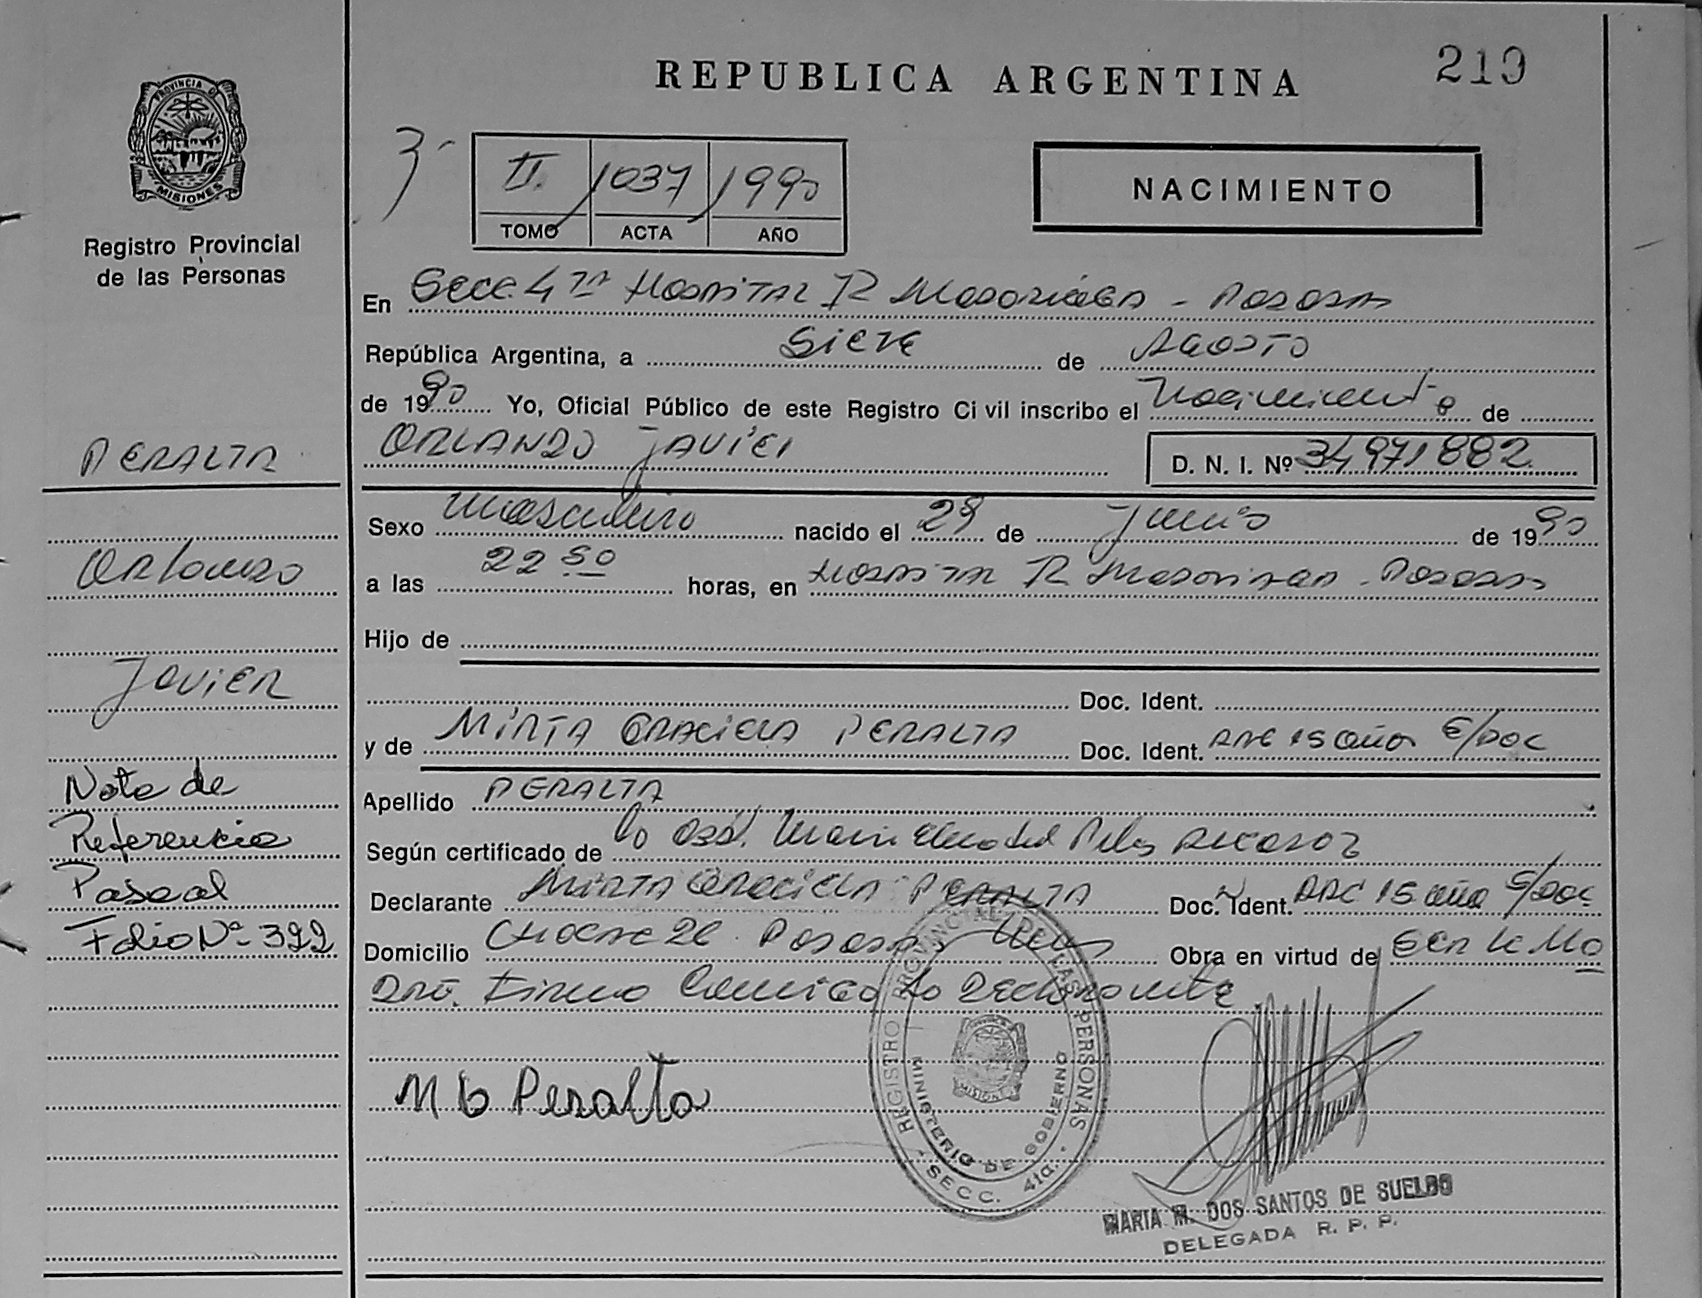 219
REPUBLICA ARGENTINA
PROVINCIA DE MISIONES
Registro Provincial
de las Personas
3-
II. 1037 1990
TOMO ACTA AÑO
NACIMIENTO
En Secc. 4ta Hospital R Madariaga - Posadas
República Argentina, a Siete de Agosto
de 1990 Yo, Oficial Público de este Registro Civil inscribo el Nacimiento de
ORLANDO JAVIER
D. N. I. Nº 34971882
PERALTA
Sexo Masculino nacido el 28 de Junio de 1990
Orlando
a las 22 50 horas, en Hospital R Madariaga - Posadas
Hijo de
Javier
Doc. Ident.
y de MIRTA GRACIELA PERALTA Doc. Ident. ARG 15 años S/DOC
Nota de
Referencia
Pascal
Folio Nº 392
Apellido PERALTA
Según certificado de la Obst.
Declarante MIRTA GRACIELA PERALTA Doc. Ident. ARG 15 año S/DOC
Domicilio Chacra 26 Posadas Obra en virtud de Ser la Ma
dre. Firma Conmigo la Declarante
M G Peralta
REGISTRO PROVINCIAL DE LAS PERSONAS
MINISTERIO DE GOBIERNO
MISIONES
SECC. 41a.
MARIA M. DOS SANTOS DE SUELDO
DELEGADA R. P. P.